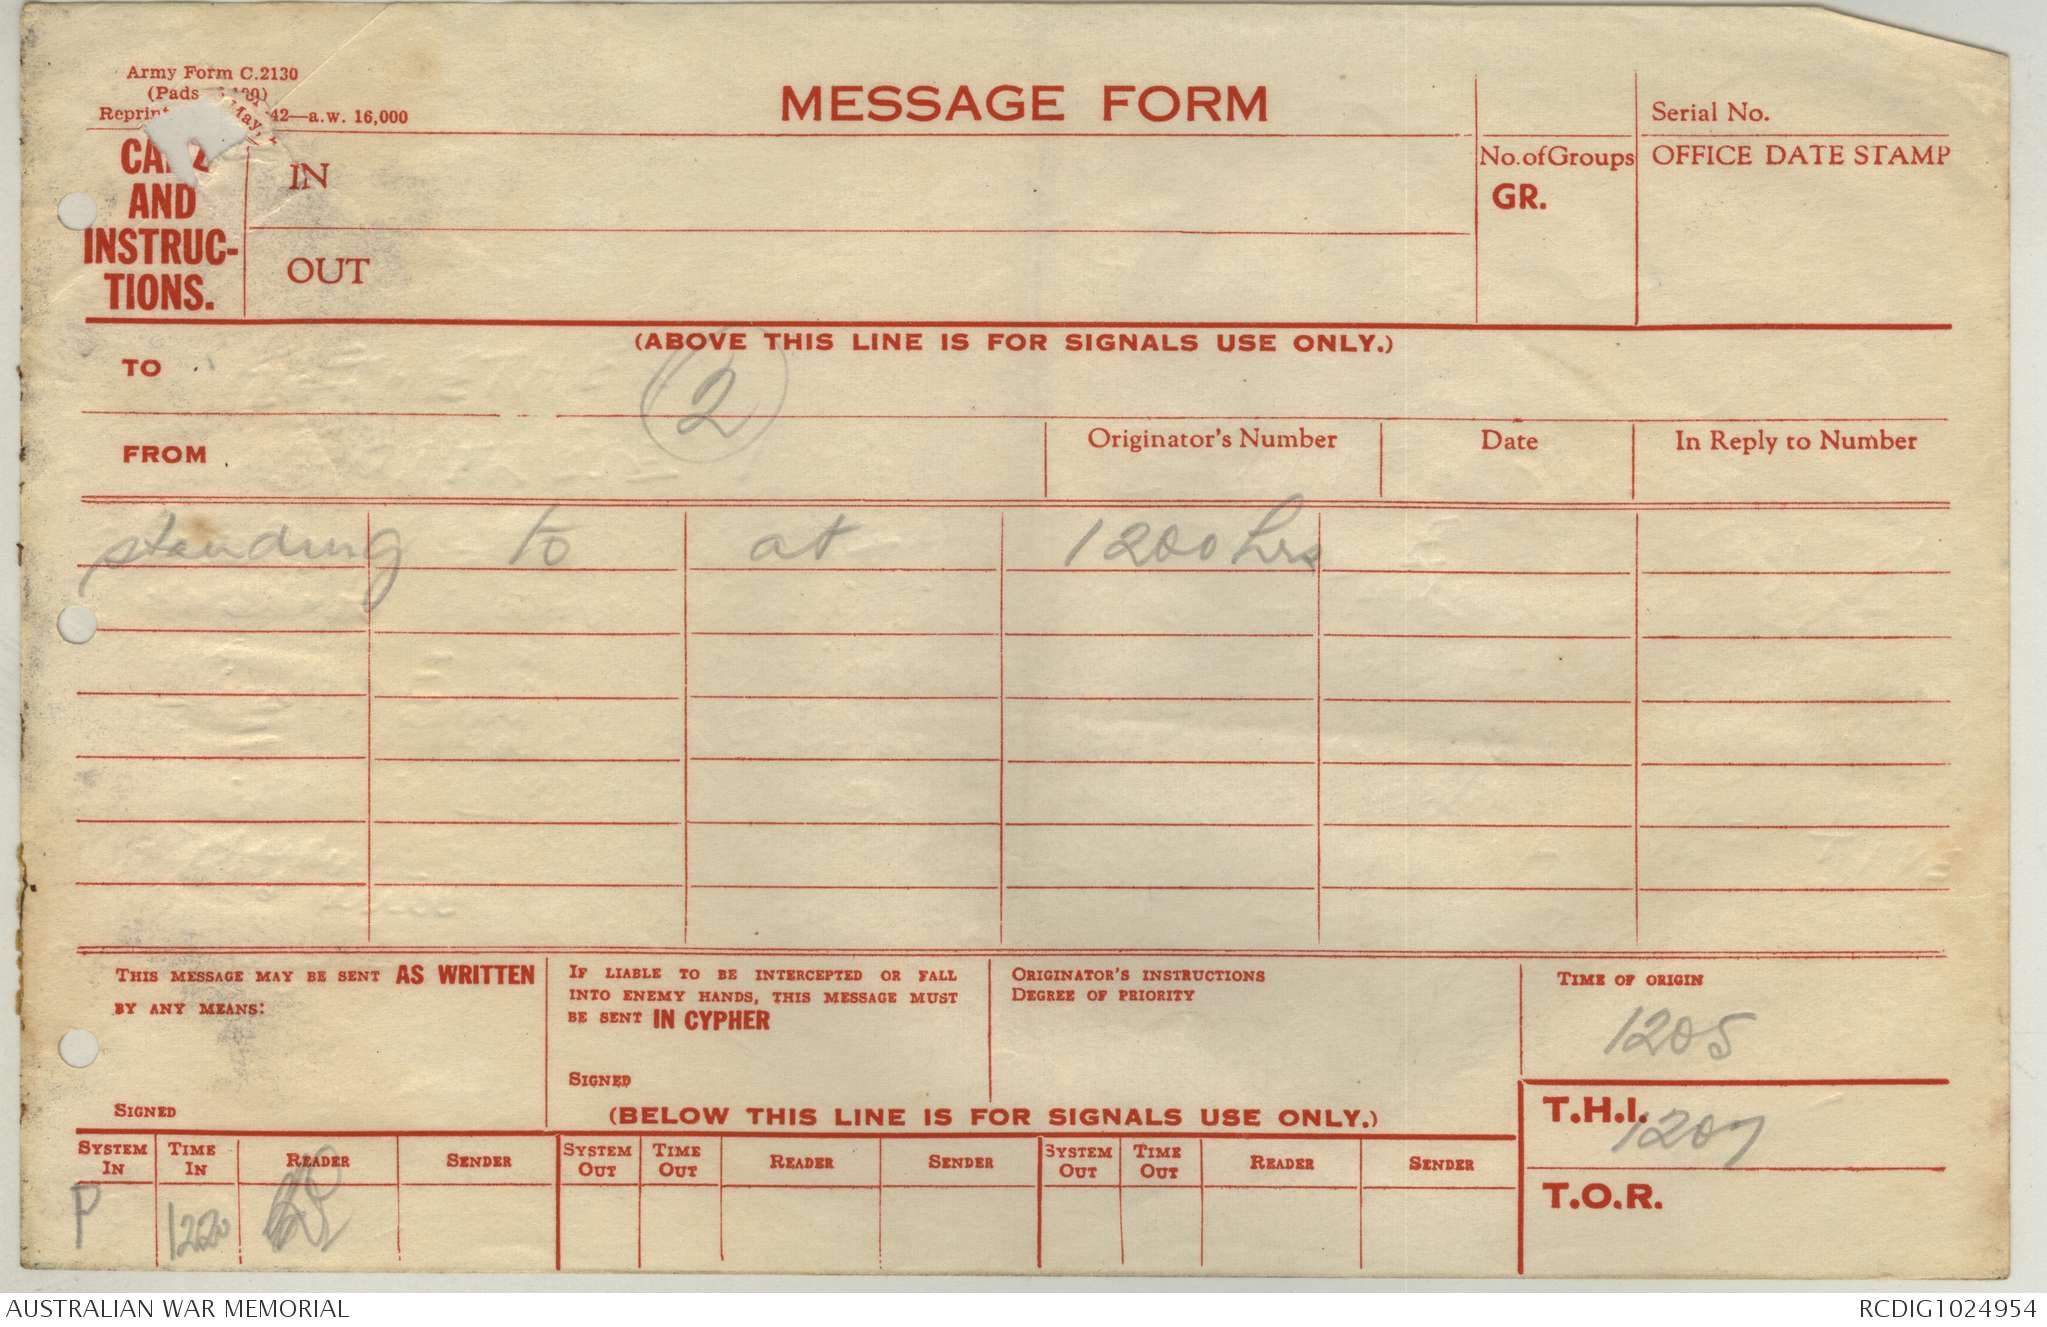 Army Form C.2130
(Pads
Reprint 42—a.w. 16,000
May,
MESSAGE FORM
Serial No.
CALL
AND
INSTRUC-
TIONS.
IN
OUT
No. of Groups
GR.
OFFICE DATE STAMP
(ABOVE THIS LINE IS FOR SIGNALS USE ONLY.)
TO
2
FROM
Originator's Number
Date
In Reply to Number
standing to at 1200 hrs
THIS MESSAGE MAY BE SENT AS WRITTEN
BY ANY MEANS:
SIGNED
IF LIABLE TO BE INTERCEPTED OR FALL
INTO ENEMY HANDS, THIS MESSAGE MUST
BE SENT IN CYPHER
SIGNED
ORIGINATOR'S INSTRUCTIONS
DEGREE OF PRIORITY
TIME OF ORIGIN
1205
(BELOW THIS LINE IS FOR SIGNALS USE ONLY.)
T.H.I. 1207
T.O.R.
SYSTEM IN TIME IN READER SENDER SYSTEM OUT TIME OUT READER SENDER SYSTEM OUT TIME OUT READER SENDER
P 1220
AUSTRALIAN WAR MEMORIAL
RCDIG1024954